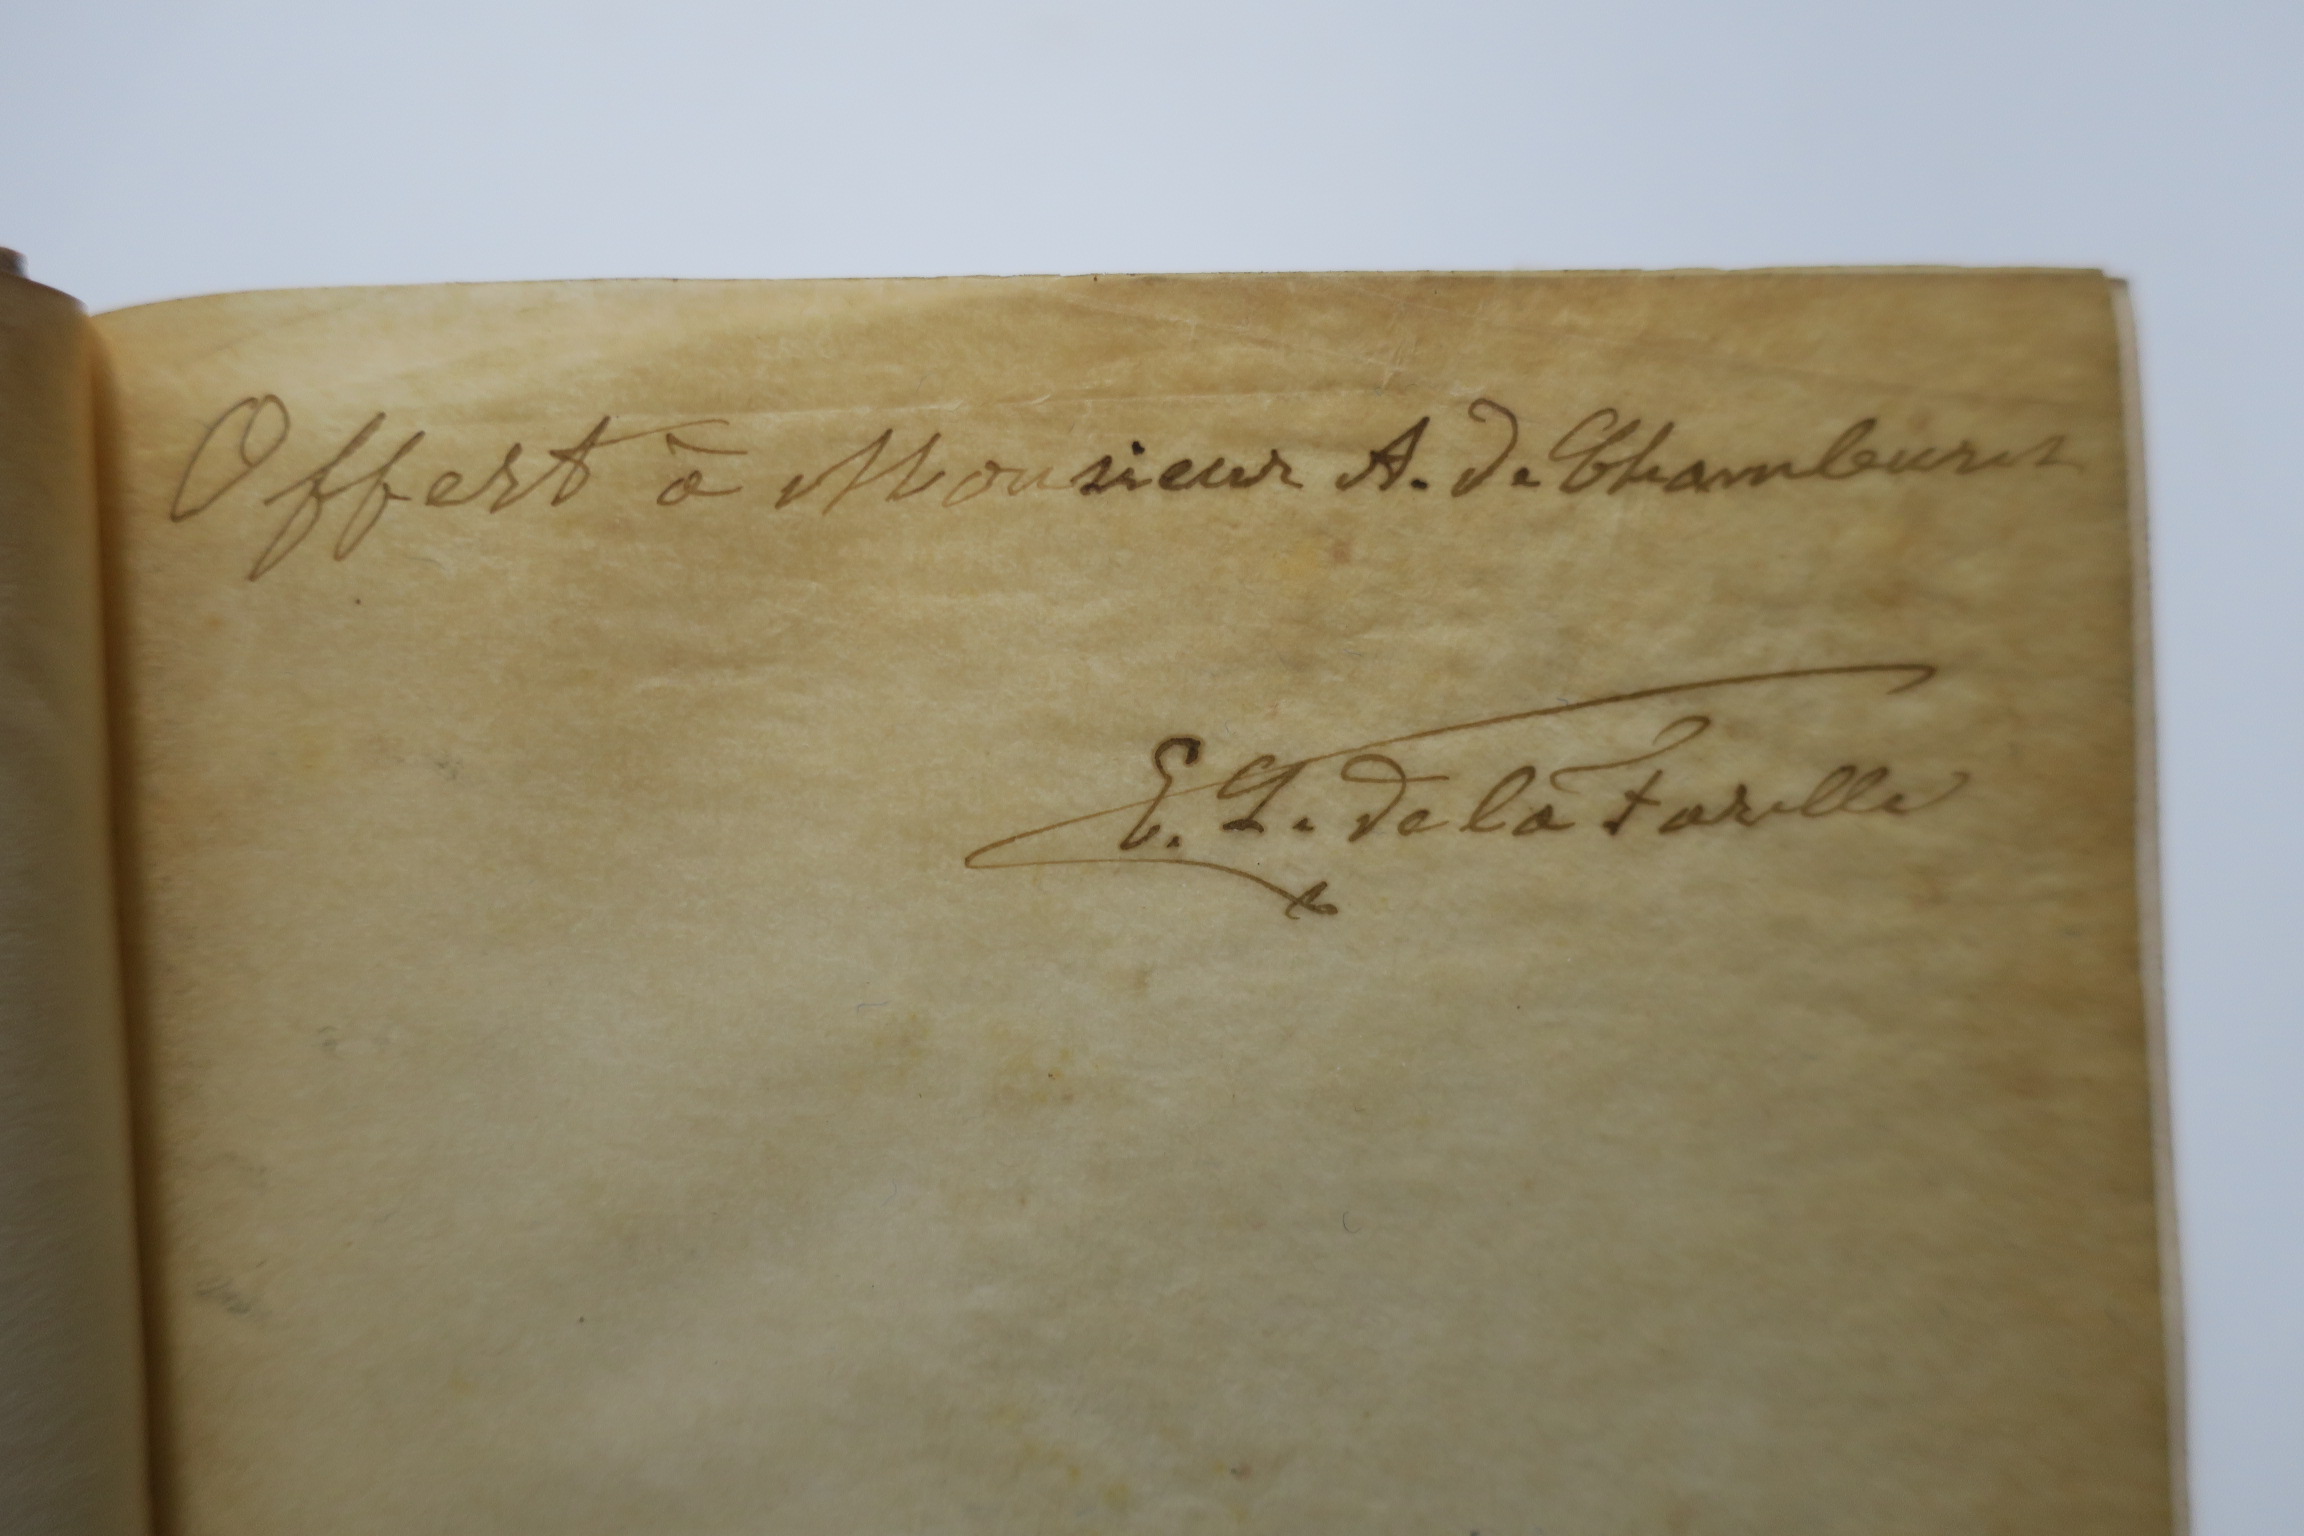 Offert à Monsieur A. de Chambure
E. G. de la Forelle